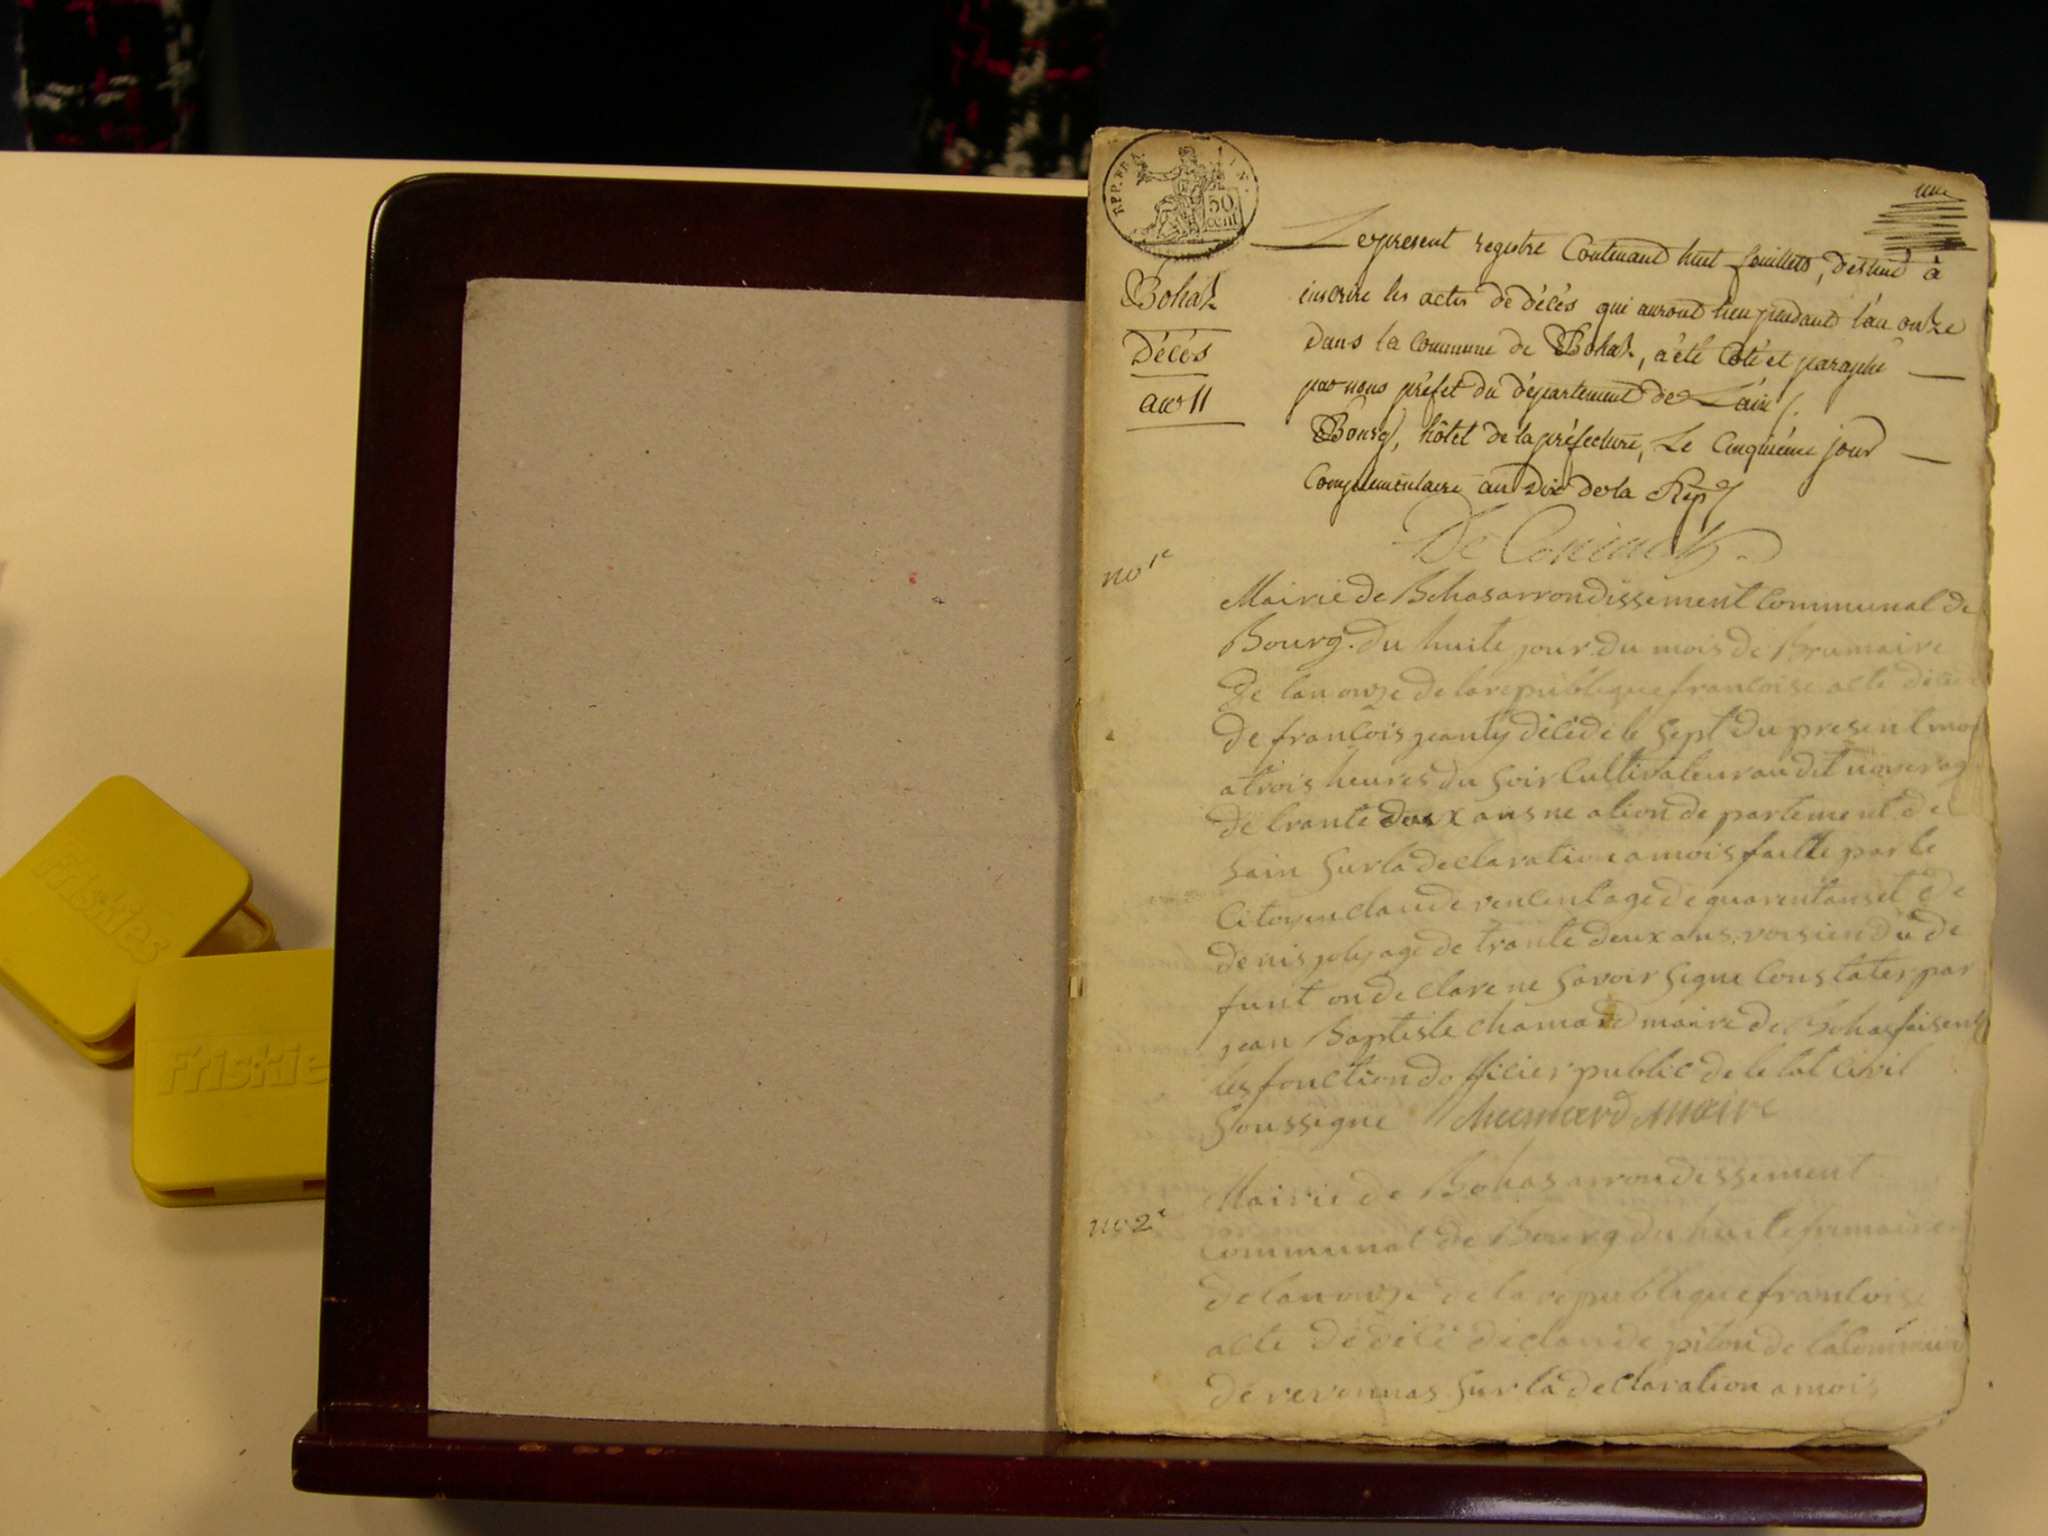 une
REP. FRA.
50
cent
Le present registre Contenant huit feuillets, destiné à
inscrire les actes de décès qui auront lieu pendant l'an onze
dans la commune de Bohas, a été Coté et paraphé
par nous préfet du département de L'ain.
Bourg, hôtel de la préfecture, Le Cinquième jour
Complémentaire an Dix de la Rep
De Coninck
Bohas
Décès
an 11
no 1e
Mairie de Bohas arrondissement Communal de
Bourg. du huite jour du mois de Brumaire
de lan onze de la republique francoise acte de
de francois jeanty décéde le sept du present mois
a trois heures du soir Cultivateur au dit
de trante deux ans ne a lion departement de
Lain sur la declaration a mois faitte par le
Citoyen claude vencent age de quarent ans et de
denis joly age de trante deux ans voisien du de
funt on declare ne savoir signe Constater par
jean Baptiste chamard maire de Bohas faisent
les fonction do fficier public de letat Civil
Soussigne Chamard maire
no 2e
Mairie de Bohas arrondissement
Communal de Bourg du huite frimaire
de lan onze de la republique francoise
acte de décé de claude piton de la Commune
de revonnas sur la declaration a mois
Friskies
Friskie